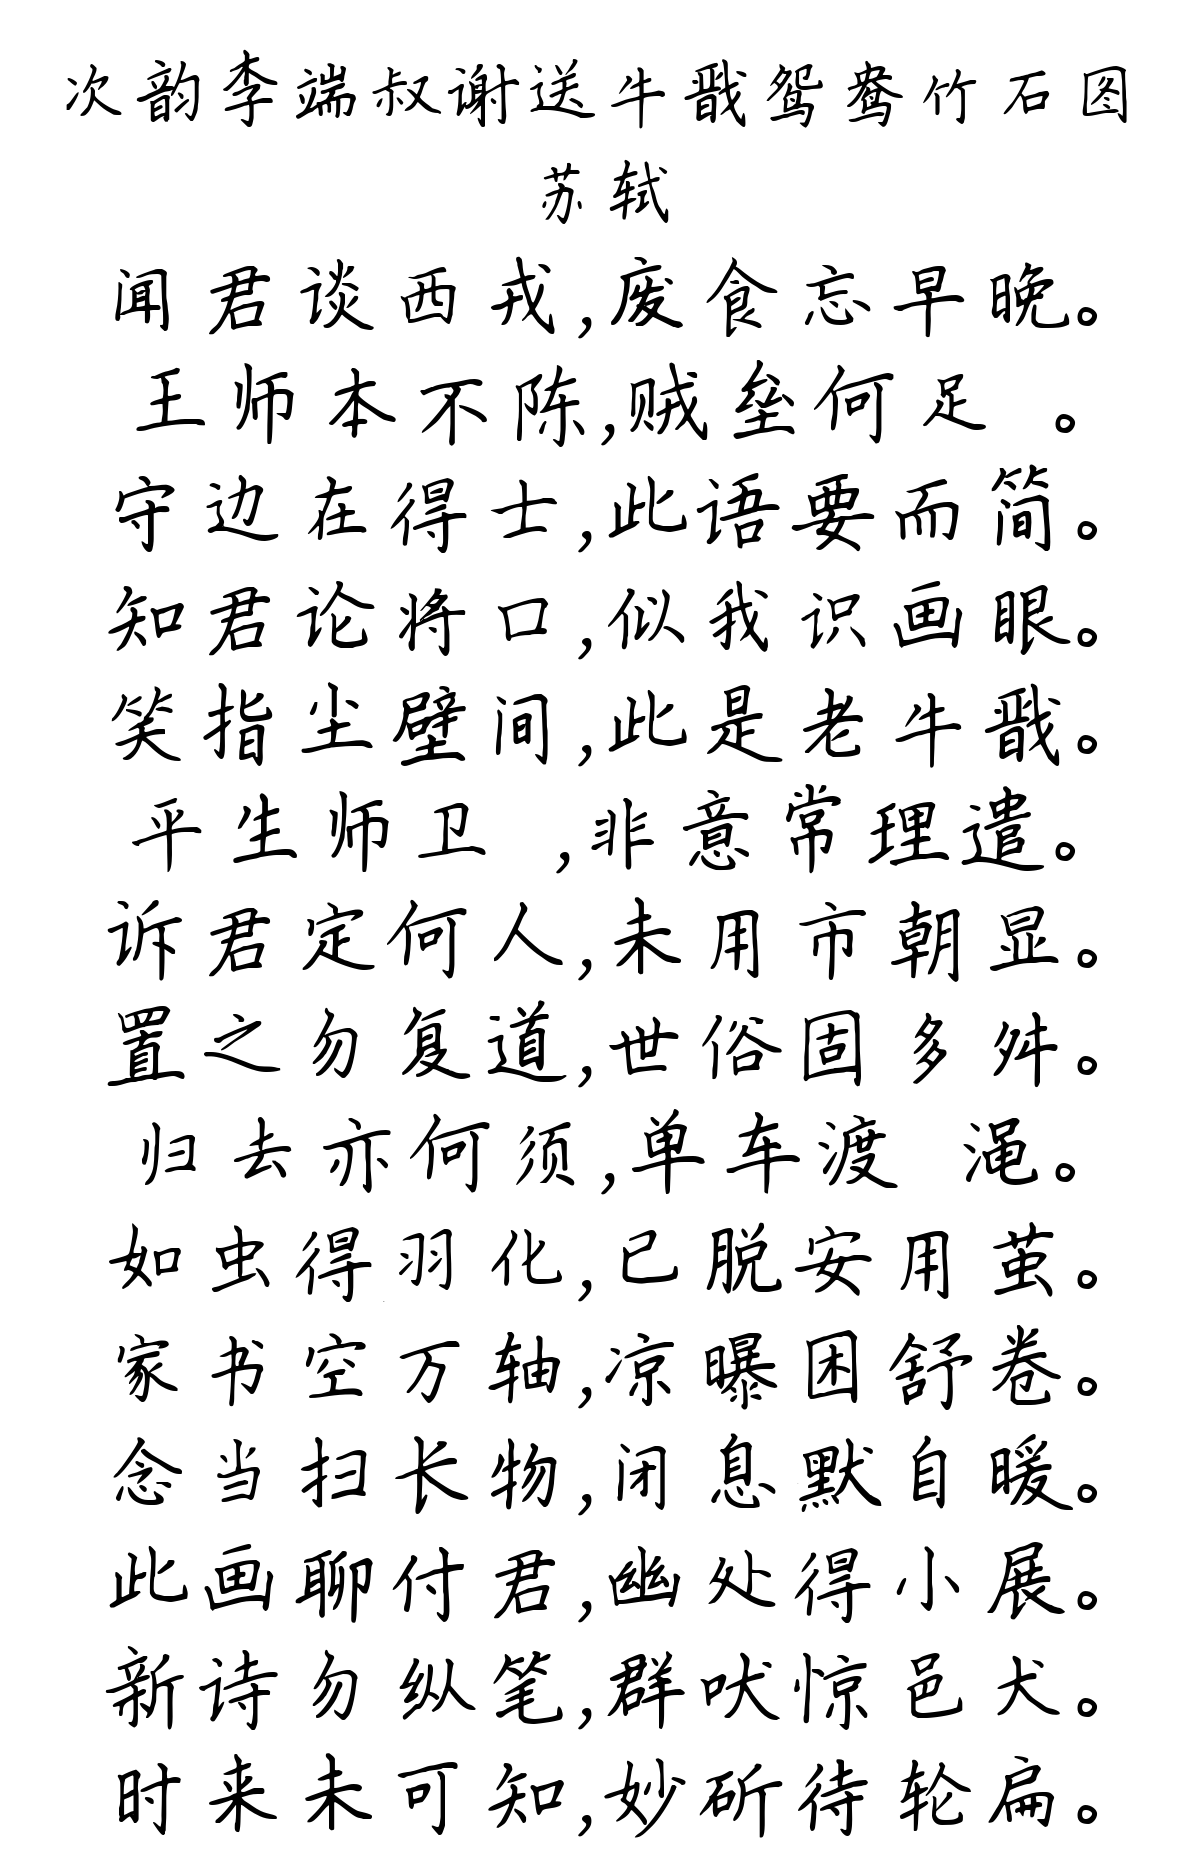 次韵李端叔谢送牛戬鸳鸯竹石图
苏轼
闻君谈西戎,废食忘早晚。
王师本不陈,贼垒何足 。
守边在得士,此语要而简。
知君论将口,似我识画眼。
笑指尘壁间,此是老牛戬。
平生师卫 ,非意常理遣。
诉君定何人,未用市朝显。
置之勿复道,世俗固多舛。
归去亦何须,单车渡 渑。
如虫得羽化,已脱安用茧。
家书空万轴,凉曝困舒卷。
念当扫长物,闭息默自暖。
此画聊付君,幽处得小展。
新诗勿纵笔,群吠惊邑犬。
时来未可知,妙斫待轮扁。